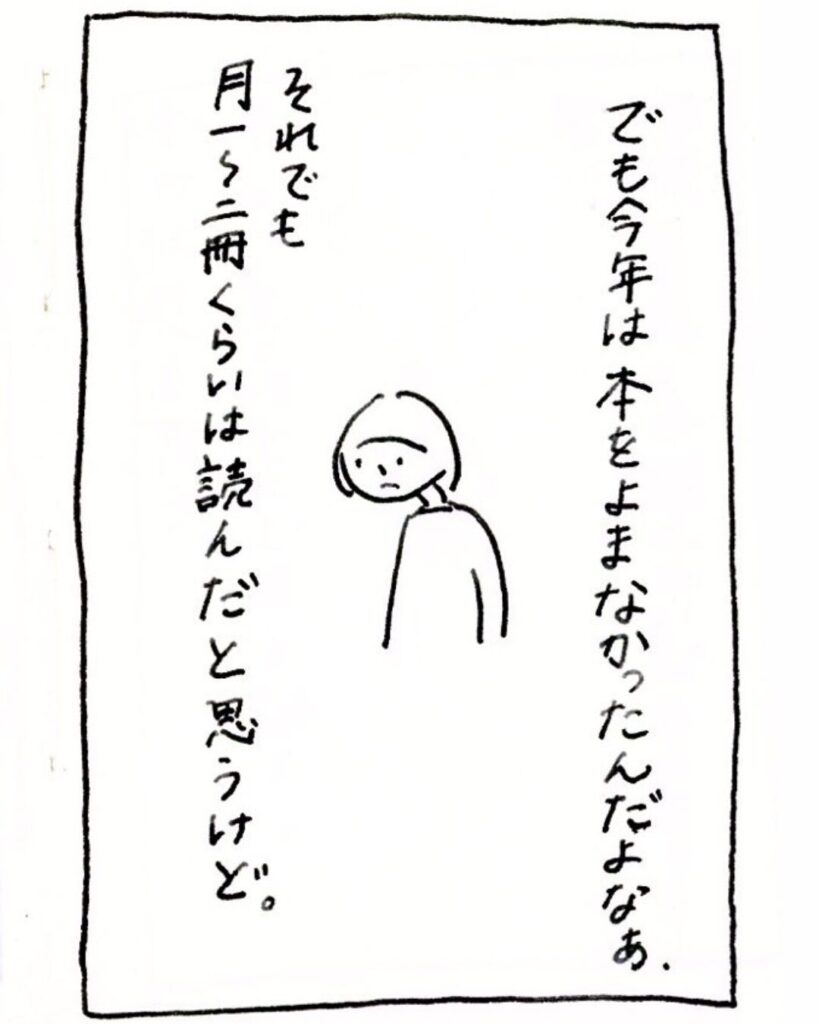 でも今年は本をよまなかったんだよなぁ.
それでも
月一〜二冊くらいは読んだと思うけど。